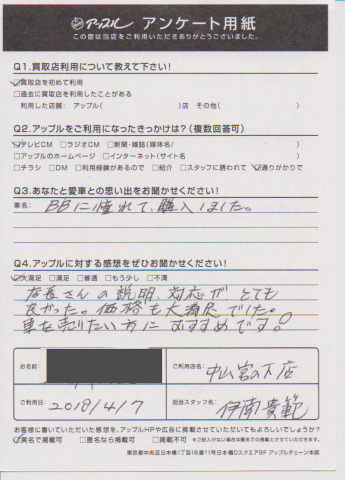 アップル アンケート用紙
この度は当店をご利用いただきありがとうございました。
Q1.買取店利用について教えて下さい!
☑買取店を初めて利用
□過去に買取店を利用したことがある
利用した店舗： アップル( )店 その他( )
Q2.アップルをご利用になったきっかけは?(複数回答可)
☑テレビCM □ラジオCM □新聞・雑誌(媒体名/ )
□アップルのホームページ □インターネット(サイト名 )
□チラシ □DM □利用経験があるので □紹介 □スタッフに誘われて ☑通りがかりで
Q3.あなたと愛車との思い出をお聞かせください!
車名: BBに憧れて、購入しました。
Q4.アップルに対する感想をぜひお聞かせください!
☑大満足 □満足 □普通 □もう少し □不満
店長さんの説明、対応が、とても
良かった。価格も大満足でした。
車を売りたい方におすすめです!
お名前
ご利用店名: 中山宮の下店
ご利用日: 2018/4/7
担当スタッフ名: 伊南貴範
お客様に書いていただいた感想を、アップルHPや広告に掲載させていただいてもよろしいでしょうか?
☑実名で掲載可 □匿名なら掲載可 □掲載不可 ※ご記入がない場合は匿名での掲載とさせていただきます。
東京都中央区日本橋1丁目16番11号日本橋Dスクエア5F アップルチェーン本部